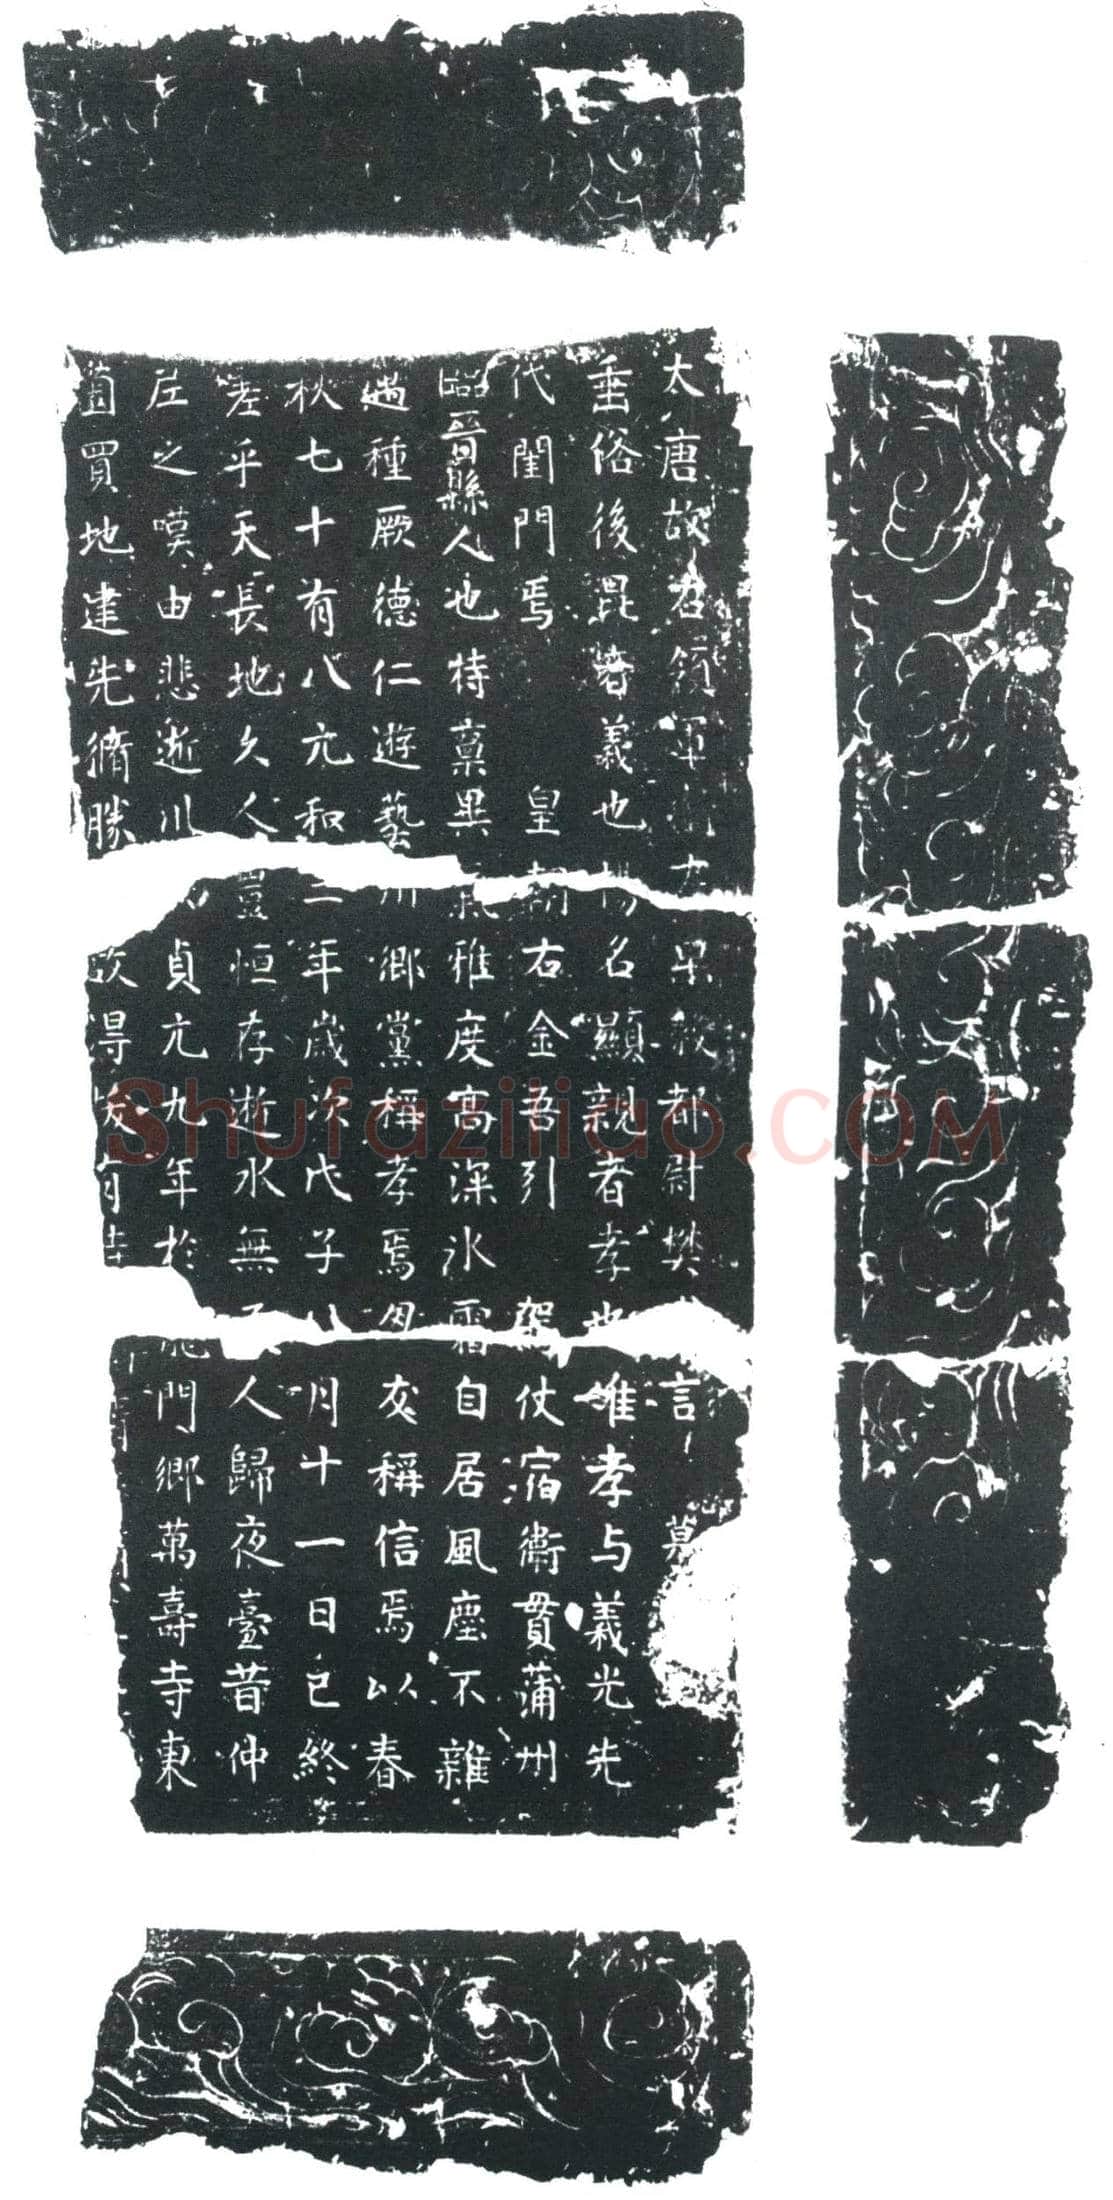 大唐故右領軍衛 果毅都尉樊 言 墓
垂俗後昆者義也揚名顯親者孝也 唯孝与義光先
代閨門焉 皇朝右金吾引駕仗宿衛貫蒲州
臨晉縣人也特禀異氣雅度高深冰霜自居風塵不雜
邁種厥德仁遊藝州鄉黨稱孝焉朋友稱信焉以春
秋七十有八元和二年歲次戊子八月十一日已終
差乎天長地久人豈恒存逝水無 人歸夜臺昔仲
左之嘆由悲逝川 貞元九年於龍門鄉萬壽寺東
買地建先脩勝 故得 有
Shufaziliao.COM